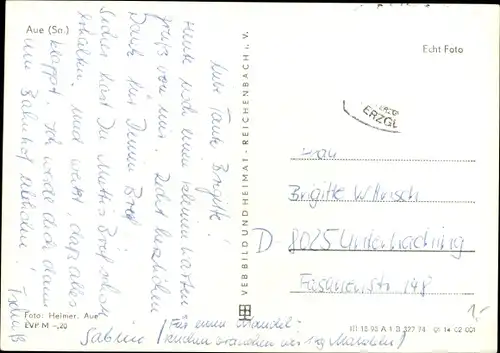 Aue (Sa.)
Echt Foto
Liebe Tante Brigitte!
Heute noch einen kleinen Karten-
gruß von mir. Recht herzlichen
Dank für Deinen Brief.
Sicher hast Du Muttis Brief schon
erhalten und weißt, daß alles
klappt. Ich werde dich dann
am Bahnhof
Sabine
Für einen Mandel-
kuchen brauchen wir
VEB BILD UND HEIMAT · REICHENBACH i. V.
ERZG
Frau
Brigitte
D 8025 Unterhaching
148
Foto: Helmer, Aue
EVP M -,20
III 18 90 A 1 B 327 74 01 14 02 001
1,-